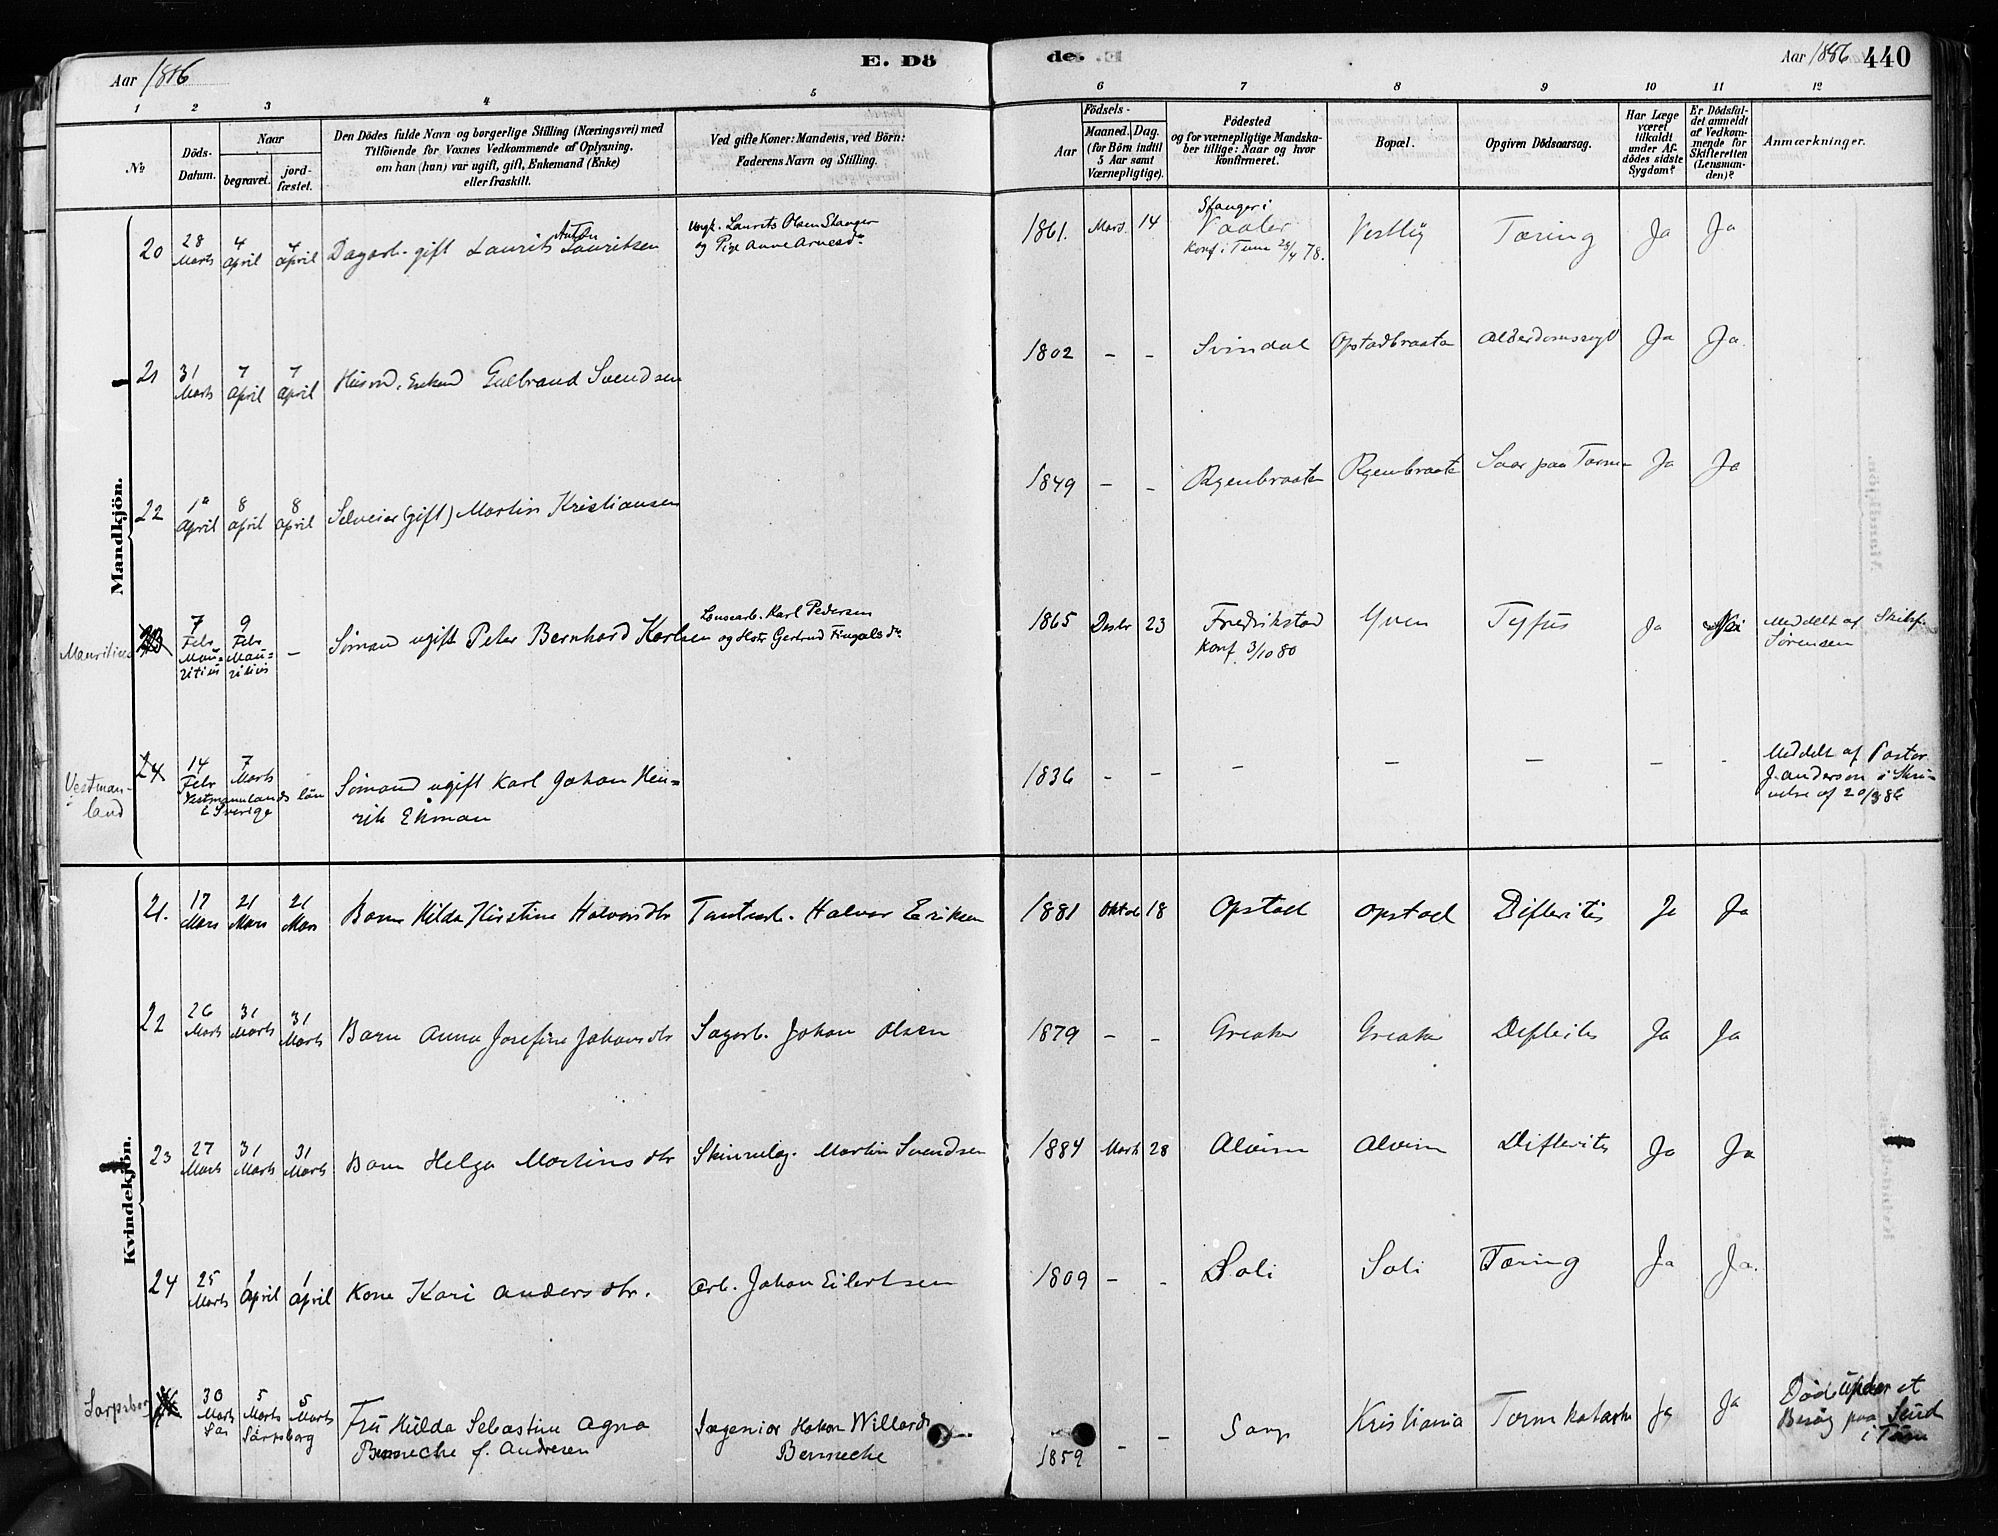 Aar 1886
E. Dö
de.
Aar 1886
440
1 2 3 4 5 6 7 8 9 10 11 12
No
Döds-Datum.
Naar
begravet.
jordfæstet.
Den Dödes fulde Navn og borgerlige Stilling (Næringsvei) med
Tilföiende for Voxnes Vedkommende af Oplysning,
om han (hun) var ugift, gift, Enkemand (Enke)
eller fraskilt.
Ved gifte Koner: Mandens, ved Börn:
Faderens Navn og Stilling.
Födsels-
Aar
Maaned. Dag.
(for Börn indtil
5 Aar samt
Værnepligtige).
Födested
og for værnepligtige Mandskaber tillige: Naar og hvor
konfirmeret.
Bopæl.
Opgiven Dödsaarsag.
Har Læge
været
tilkaldt
under Afdödes sidste
Sygdom?
Er Dödsfaldet anmeldt
af Vedkommende for
Skifteretten
(Lensmanden)?
Anmærkninger.
Mandkjön.
20 28 Marts 4 April 4 April Dagarb. gift Laurits Anton Lauritsen Ungk. Laurits Olsen Stanger og Pige Anne Arnesdr 1861. Mars. 14 Stanger i Vaaler Konf. i Tune 28/4 78. Vestby Tæring Ja Ja
21 31 Marts 7 April 7 April Husmd. Enkemd Gulbrand Svendsen 1802 - - Svindal Opstadbraaten Alderdomssvagh Ja Ja.
22 1 April 8 April 8 April Selveier (gift) Martin Kristiansen 1849 - - Ryenbraaten Ryenbraaten Saar paa Tarmen Ja Ja
Mauritius 23 7 Febr Mauritius 9 Febr Mauritius - Sømand ugift Peter Bernhard Karlsen Lensearb. Karl Pedersen og Hstr Gertrud Fingalsdr 1865 Desbr 23 Fredrikstad Konf. 3/10 80 Yven Tyfus Ja Nei Meddelt af Skibsf. Sørensen
Vestmanland 24 14 Febr 7 Marts Vestmannlands län i Sverige Sømand ugift Karl Johan Henrik Ekman 1836 - - - - - - - Meddelt af Pastor J. Anderson i Skrivelse af 20/3 86
Kvindekjön.
21. 17 Mars 21 Mars 21 Mars Barn Hilda Kirstine Halvorsdtr Tomtearb. Halvor Eriksen 1881 Oktob 18 Opstad Opstad Difteritis Ja Ja
22 26 Marts 31 Marts 31 Marts Barn Anna Josefine Johansdtr Sagarb. Johan Olsen 1879 - - Greaker Greaker Difterits Ja Ja
23 27 Marts 31 Marts 31 Marts Barn Helga Martinsdtr Skinnelæg. Martin Svendsen 1884 Marts 28 Alvim Alvim Difterits Ja Ja
24 25 Marts 1 April 1 April Kone Kari Andersdtr. Arb. Johan Eilertsen 1809 - - Soli Soli Tæring Ja Ja.
Sarpsborg 30 Marts 5 Marts 5 Marts Sarpsborg Fru Hulda Sebastine Agna Bennecke f. Andresen Ingeniør Hakon Willards Bennecke 1859 - - Sarp Kristiania Tarmkatarrh Ja Ja Død under et Besøg paa Sund i Tune